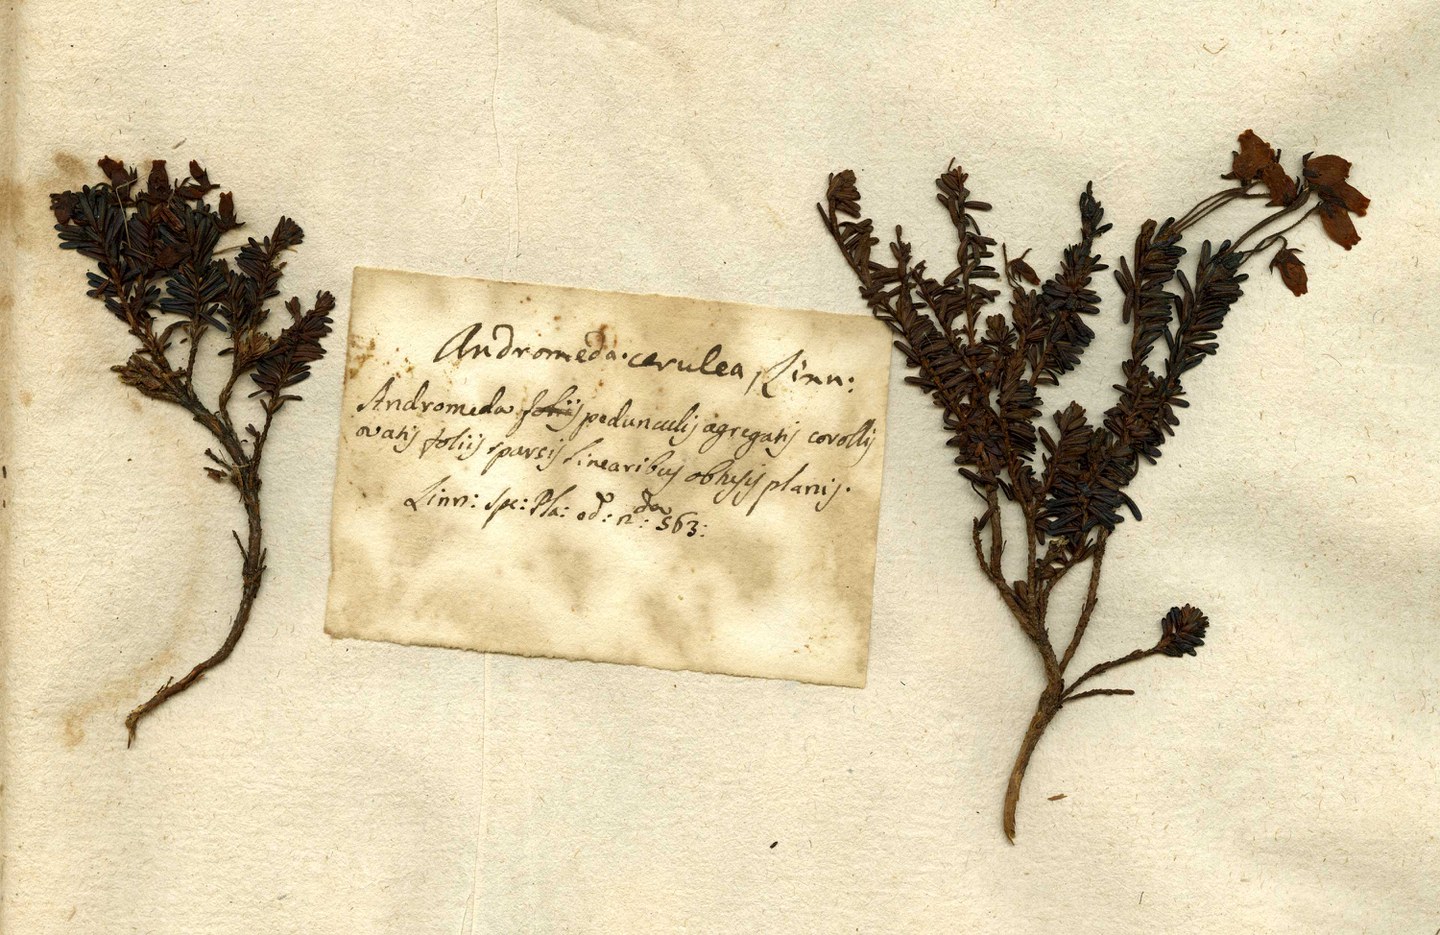 Andromeda cerulea, Linn:
Andromeda foliis pedunculis agregatis corollis
ovatis foliis sparsis linearibus obtusis planis.
Linn: spe: Pla: ed: n: da 563: